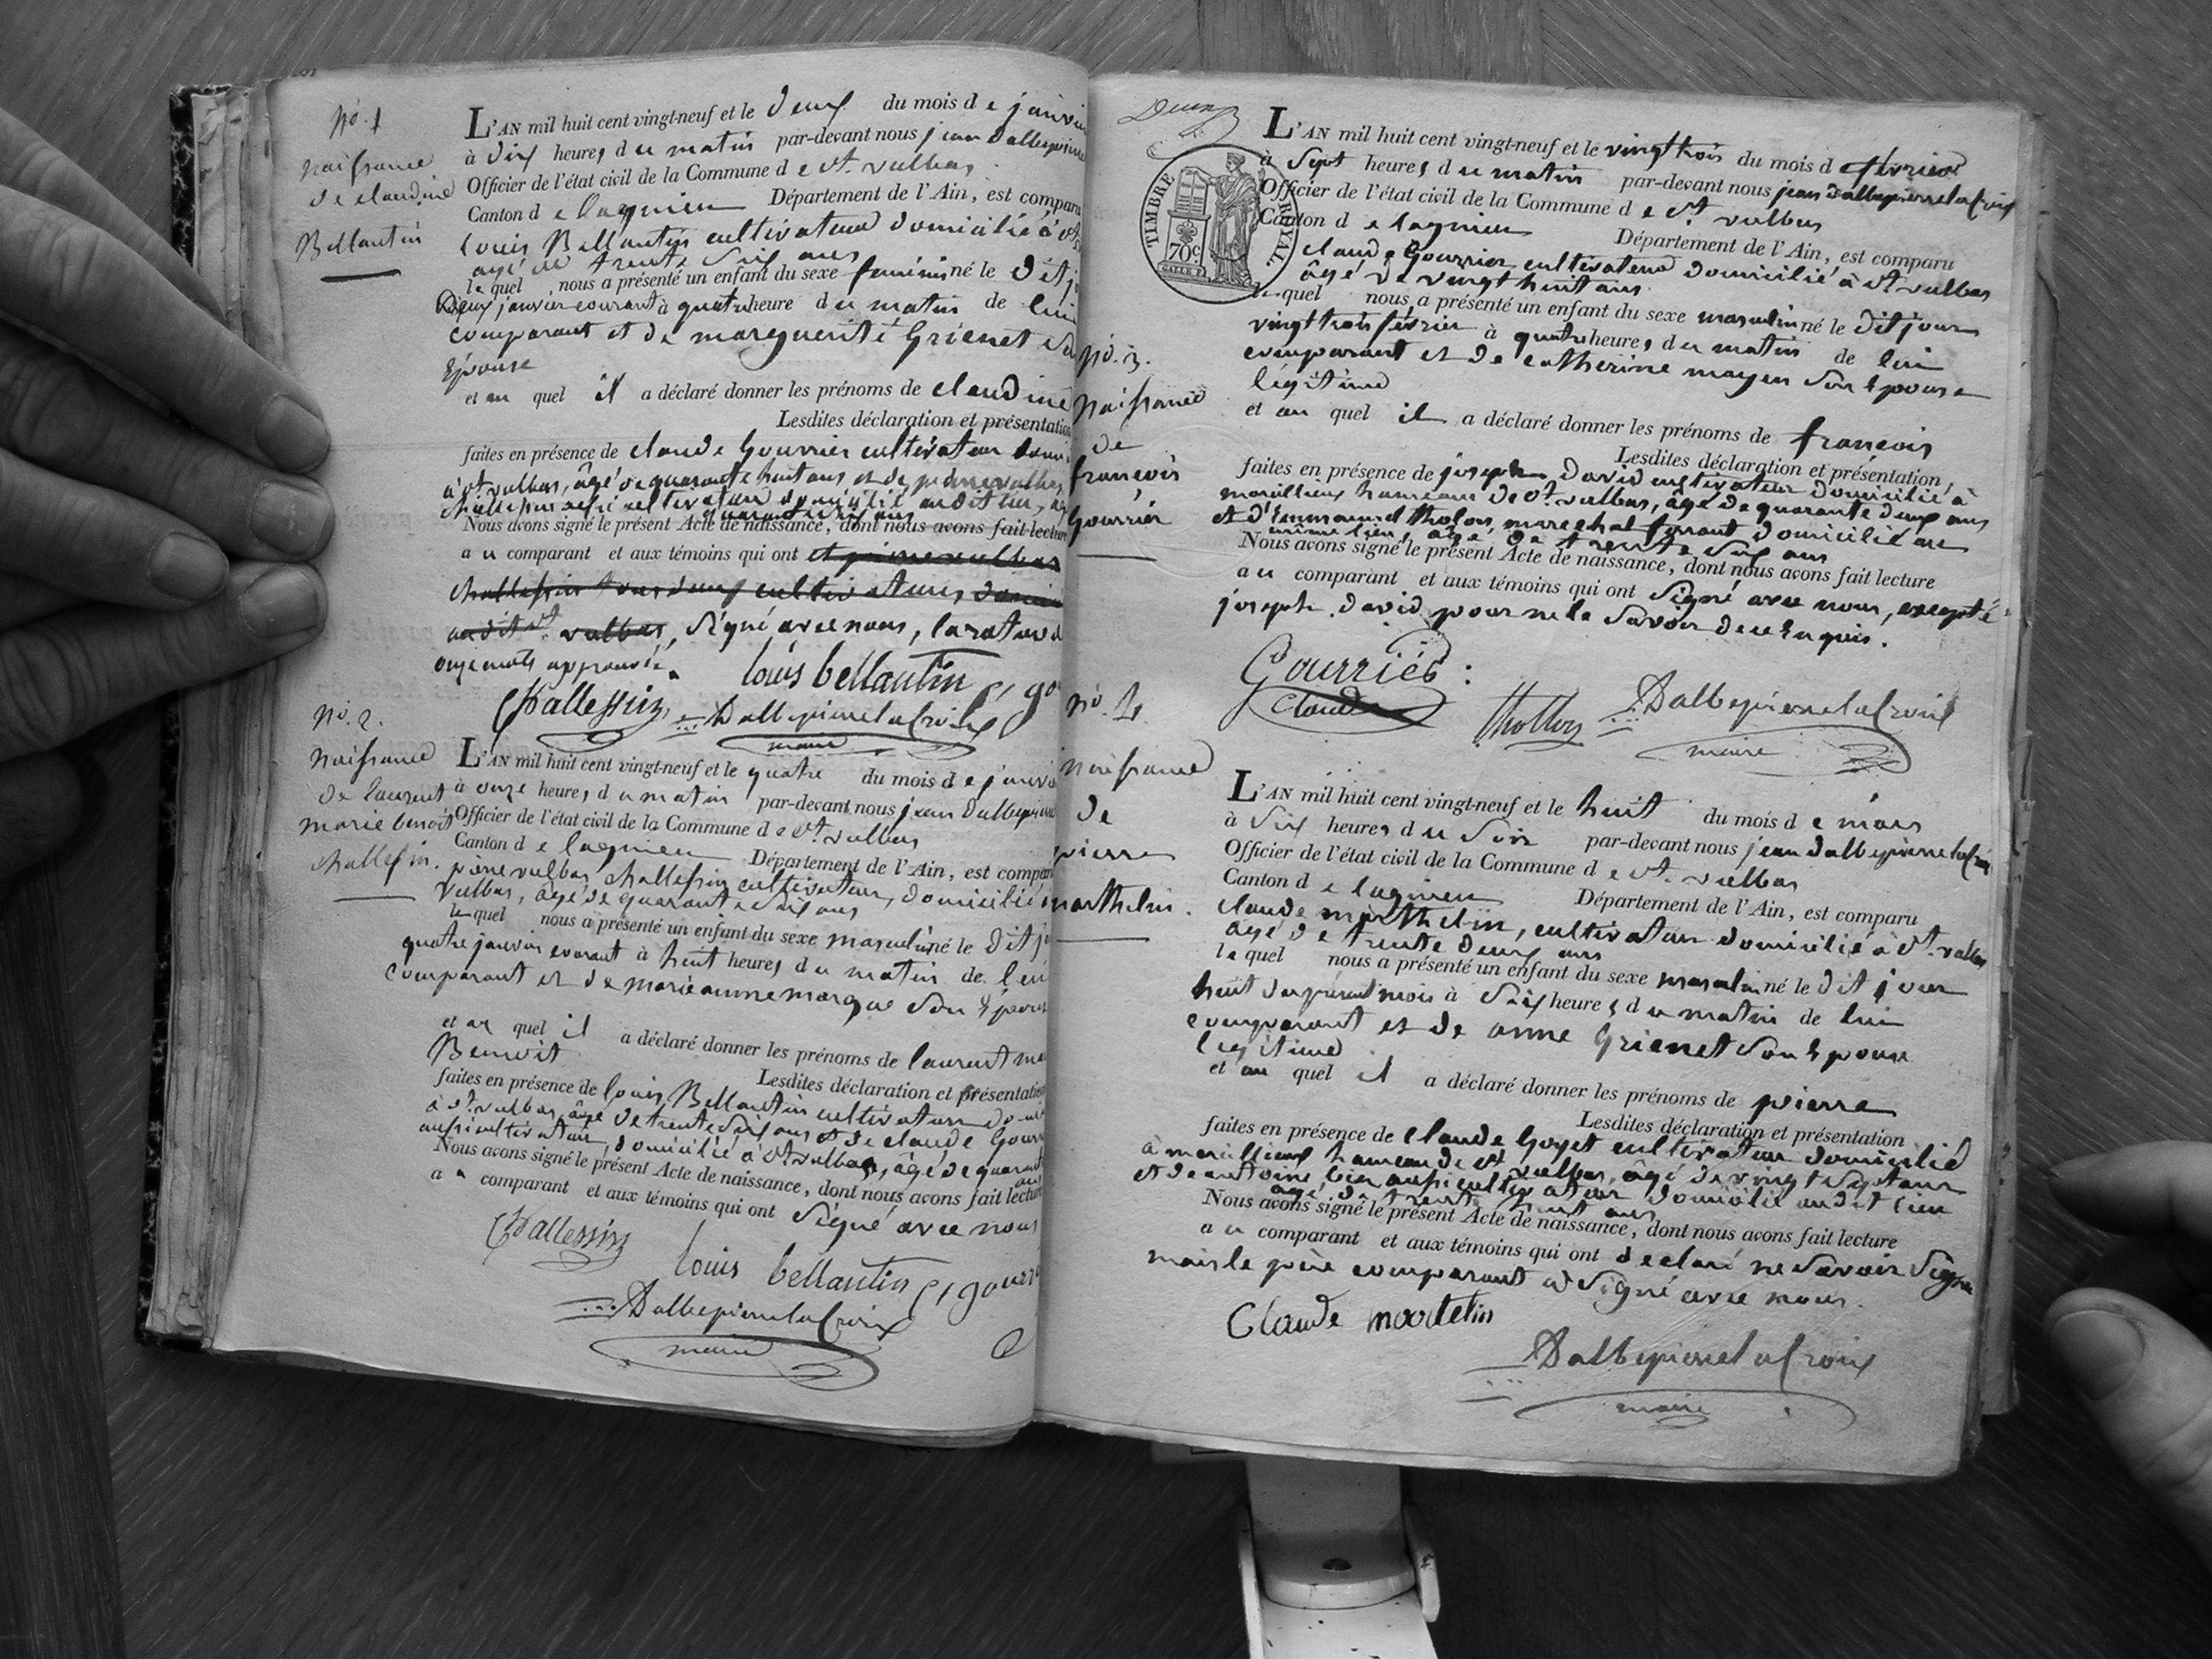 No. 1
naissance
de claudine
Bellantin
L'AN mil huit cent vingt-neuf et le deux du mois de janvier
à dix heures du matin par-devant nous jean dallepierre
Officier de l'état civil de la Commune de st. vulbas
Canton de lagnieu Département de l'Ain, est comparu
louis Bellantin cultivateur domicilié à st.
agé de trente six ans
lequel nous a présenté un enfant du sexe féminin né le dit
deux janvier courant à quatre heure du matin de lui
comparant et de marguerite Grienet sa
Epouse
et au quel il a déclaré donner les prénoms de claudine
Lesdites déclaration et présentation
faites en présence de claude Gourrier cultivateur
à st. vulbas, âgé de quarante huit ans et de pierre vulbas
challessin aussi cultivateur domicilié audit lieu,
quarante six ans
Nous avons signé le présent Acte de naissance, dont nous avons fait lecture
au comparant et aux témoins qui ont et pierre vulbas
challessin tous deux cultivateurs
audit st. vulbas, signé avec nous, la rature
onze mots approuvée.
louis bellantin
Challessin
Dallepierre la Croix
maire
No. 2.
naissance
de laurent
marie benoit
challessin.
L'AN mil huit cent vingt-neuf et le quatre du mois de janvier
à onze heures du matin par-devant nous jean Dallepierre
Officier de l'état civil de la Commune de st. vulbas
Canton de lagnieu Département de l'Ain, est comparu
pierre vulbas challessin cultivateur, domicilié
vulbas, âgé de quarante six ans
lequel nous a présenté un enfant du sexe masculin né le dit
quatre janvier courant à huit heures du matin de lui
comparant et de marie anne marque son Epouse
et au quel il a déclaré donner les prénoms de laurent
Benoit
Lesdites déclaration et présentation
faites en présence de louis Bellantin cultivateur
à st. vulbas âgé de trente six ans et de claude Gourrier
aussi cultivateur, domicilié à st. vulbas, âgé de quarante
ans
Nous avons signé le présent Acte de naissance, dont nous avons fait lecture
au comparant et aux témoins qui ont signé avec nous
Challessin
louis bellantin
Dallepierre la Croix
maire
Deux
TIMBRE ROYAL.
70c
No. 3.
naissance
de
francois
Gourrier
L'AN mil huit cent vingt-neuf et le vingt trois du mois de février
à sept heures du matin par-devant nous jean Dallepierre la Croix
Officier de l'état civil de la Commune de st. vulbas
Canton de lagnieu Département de l'Ain, est comparu
claude Gourrier cultivateur domicilié à st. vulbas
âgé de vingt huit ans
lequel nous a présenté un enfant du sexe masculin né le dit jour
vingt trois février à quatre heures du matin de lui
comparant et de catherine mayen son Epouse
légitime
et au quel il a déclaré donner les prénoms de francois
Lesdites déclaration et présentation,
faites en présence de joseph david cultivateur domicilié à
marcillieux hameau de st. vulbas, âgé de quarante deux ans
et d'Emmanuel tholon, marechal ferrant domicilié au
même lieu, âgé de trente six ans
Nous avons signé le présent Acte de naissance, dont nous avons fait lecture
au comparant et aux témoins qui ont signé avec nous, excepté
joseph david pour ne le savoir de ce Enquis.
Gourrier
Claude
Thollon
Dallepierre la Croix
maire
No. 4.
naissance
de
pierre
marthelin.
L'AN mil huit cent vingt-neuf et le huit du mois de mars
à six heures du soir par-devant nous jean dallepierre la Croix
Officier de l'état civil de la Commune de st. vulbas
Canton de lagnieu Département de l'Ain, est comparu
claude marthelin, cultivateur domicilié à st. vulbas
âgé de trente deux ans
lequel nous a présenté un enfant du sexe masculin né le dit jour
huit du présent mois à six heures du matin de lui
comparant et de anne Grienet son Epouse
légitime
et au quel il a déclaré donner les prénoms de pierre
Lesdites déclaration et présentation
faites en présence de claude Goyet cultivateur domicilié
à marcillieux hameau de st. vulbas, âgé de vingt sept ans
et de antoine bier aussi cultivateur domicilié audit lieu
âgé de trente huit ans
Nous avons signé le présent Acte de naissance, dont nous avons fait lecture
au comparant et aux témoins qui ont declaré ne savoir signer
mais le père comparant a signé avec nous.
Claude martelin
Dallepierre la Croix
maire